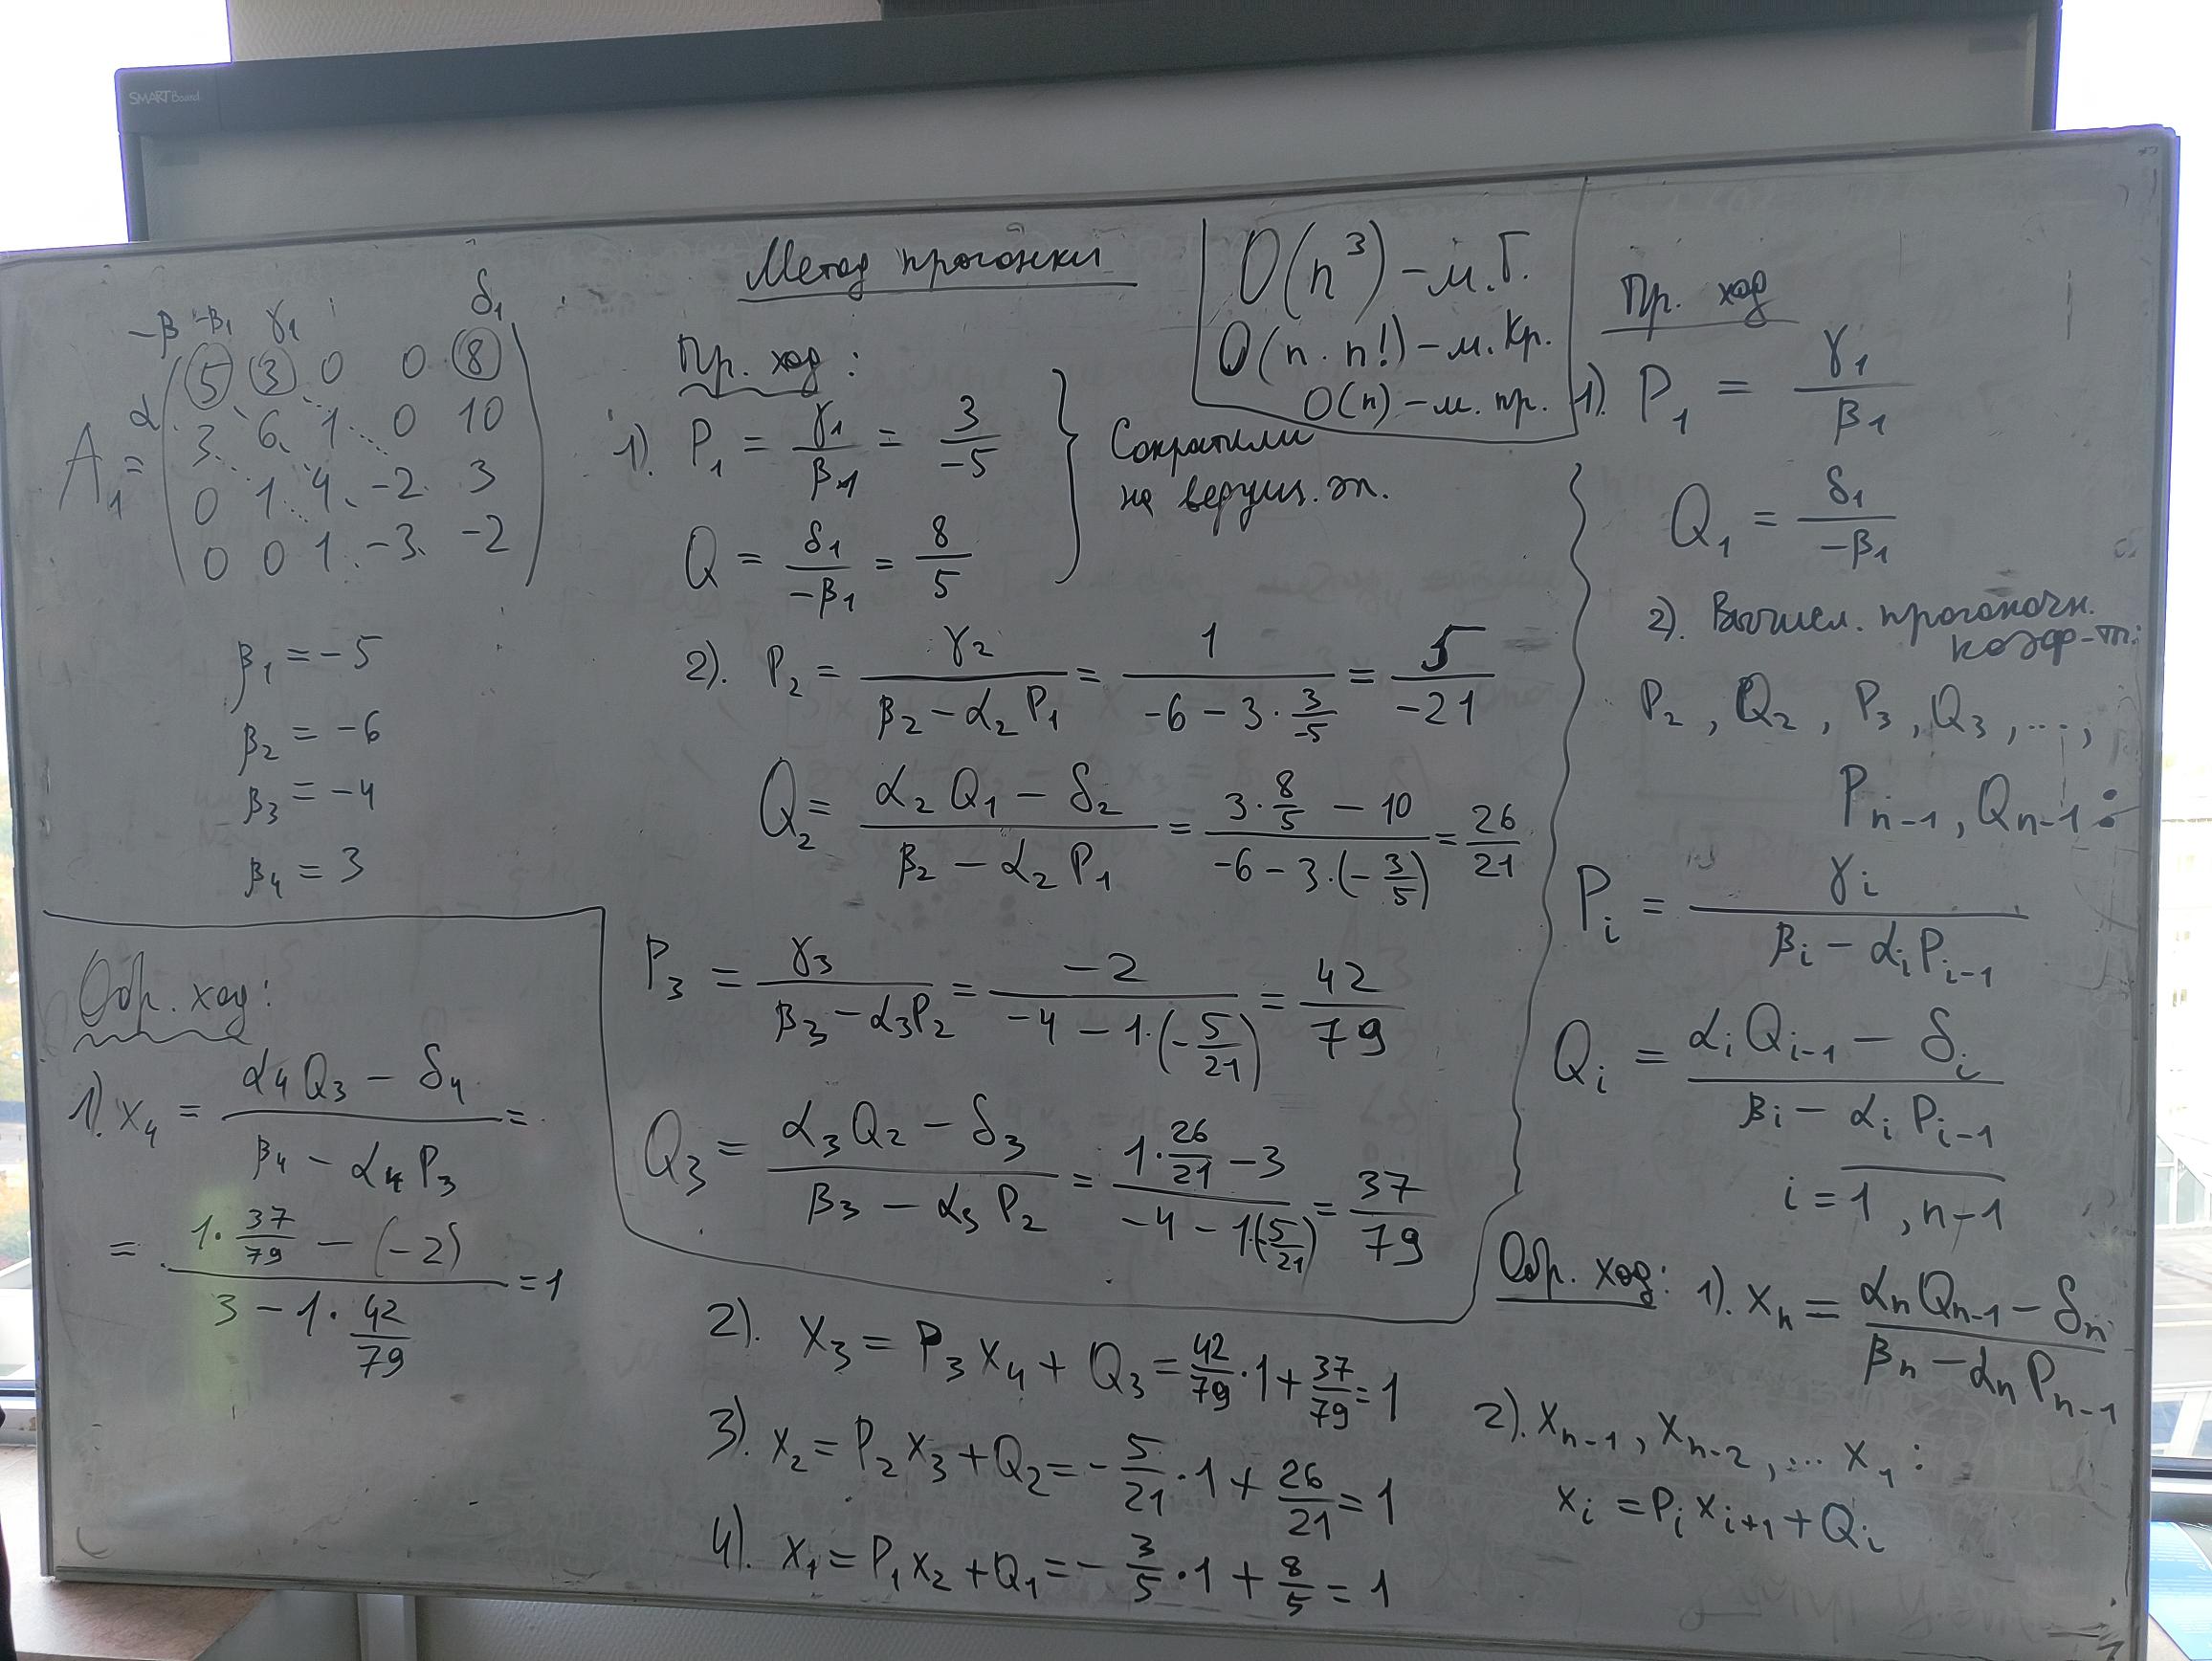 SMART Board
Метод прогонки
O(n³) – м. Г.
O(n · n!) – м. Кр.
O(n) – м. пр.
-β -β₁ γ₁ δ₁
α
A₁ =
5 3 0 0 8
3 6 1 0 10
0 1 4 -2 3
0 0 1 -3 -2
β₁ = -5
β₂ = -6
β₃ = -4
β₄ = 3
Пр. ход:
1). P₁ = γ₁/β₁ = 3/-5
Q = δ₁/-β₁ = 8/5
Сократили
на ведущ. эл.
2). P₂ = γ₂/(β₂ - α₂ P₁) = 1/(-6 - 3 · 3/-5) = 5/-21
Q₂ = (α₂ Q₁ - δ₂)/(β₂ - α₂ P₁) = (3 · 8/5 - 10)/(-6 - 3 · (-3/5)) = 26/21
P₃ = γ₃/(β₃ - α₃P₂) = -2/(-4 - 1 · (-5/21)) = 42/79
Q₃ = (α₃ Q₂ - δ₃)/(β₃ - α₃ P₂) = (1 · 26/21 - 3)/(-4 - 1(-5/21)) = 37/79
Обр. ход:
1). x₄ = (α₄ Q₃ - δ₄)/(β₄ - α₄ P₃) =
= (1 · 37/79 - (-2))/(3 - 1 · 42/79) = 1
2). x₃ = P₃ x₄ + Q₃ = 42/79 · 1 + 37/79 = 1
3). x₂ = P₂ x₃ + Q₂ = - 5/21 · 1 + 26/21 = 1
4). x₁ = P₁ x₂ + Q₁ = - 3/5 · 1 + 8/5 = 1
Пр. ход
1). P₁ = γ₁/β₁
Q₁ = δ₁/-β₁
2). Вычисл. прогоночн.
коэф-т:
P₂, Q₂, P₃, Q₃, ...,
Pₙ₋₁, Qₙ₋₁:
Pᵢ = γᵢ/(βᵢ - αᵢ Pᵢ₋₁)
Qᵢ = (αᵢ Qᵢ₋₁ - δᵢ)/(βᵢ - αᵢ Pᵢ₋₁)
i = 1, n-1
Обр. ход: 1). xₙ = (αₙ Qₙ₋₁ - δₙ)/(βₙ - αₙ Pₙ₋₁)
2). xₙ₋₁, xₙ₋₂, ... x₁:
xᵢ = Pᵢ xᵢ₊₁ + Qᵢ